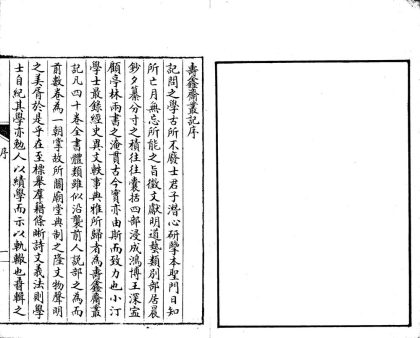 壽鑫齋叢記序
記問之學古所不廢士君子潛心研學本聖門日知
所亡月無忘所能之旨徵文獻明道藝類別部居晨
鈔夕纂分寸之積往往囊括四部浸成鴻博王深寍
顧亭林兩書之淹貫古今實亦由斯而致力也小汀
學士最錄經史異文軼事典雅所歸者為壽鑫齋叢
記凡四十卷全書體類雖似沿襲前人說部之為而
前數卷為一朝掌故所關廟堂典制之隆文物聲明
之美胥於是乎在至標舉羣籍條晰詩文義法則學
士自紀其學亦勉人以績學而示以軌轍也昝輯之
序